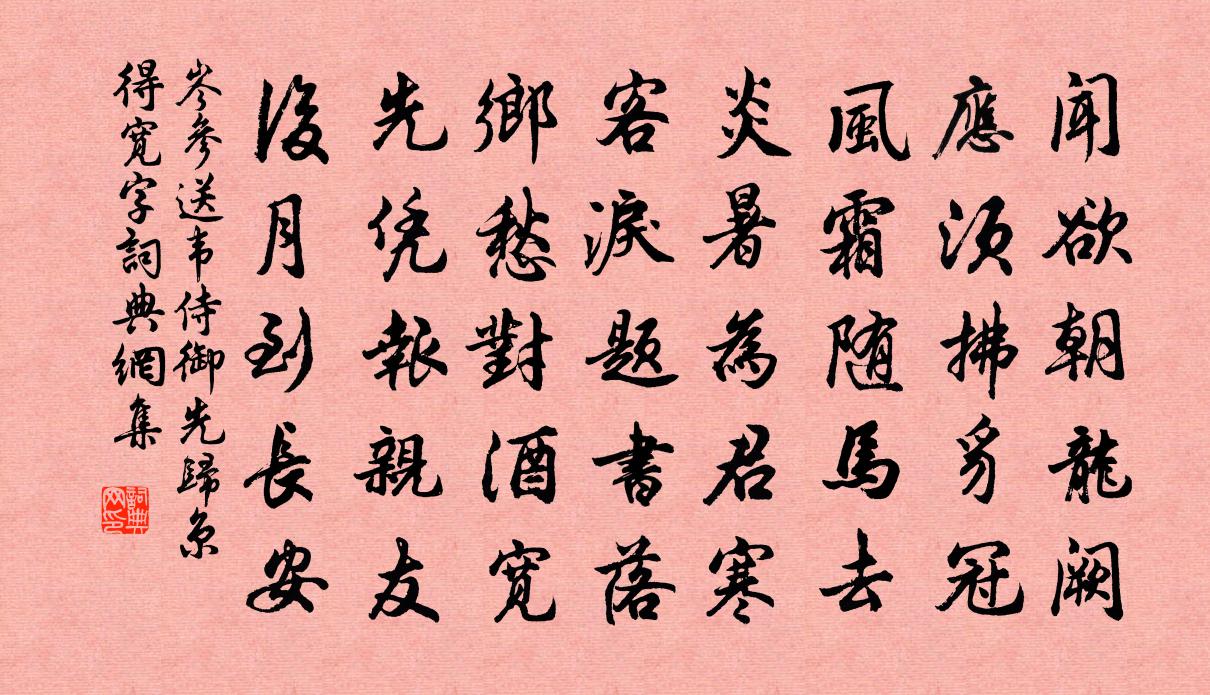 闻欲朝龍阙
應須拂豸冠
風霜随馬去
炎暑為君寒
客淚题書落
鄉愁對酒寬
先凭報親友
後月到長安
岑參送韦侍御先歸京
得寬字詞典網集
詞典网印